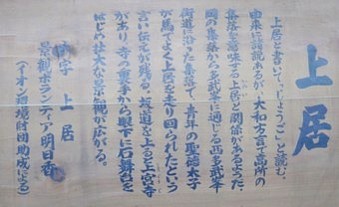 上居
上居と書いて、「じょうご」と読む。
由来に諸説あるが、大和方言で高所の
集落を意味する上がと関係があるようだ。
岡の集落から多武峯に通じる西多武峯
街道に沿った集落で、青年の聖徳太子
が馬でよく上居を走り回られたという
言い伝えが残る。坂道を上ると上宮寺
があり、寺の裏手から眼下に石舞台を
はじめ壮大な景観が広がる。
大字 上居
景観ボランティア明日香
(イオン環境財団助成による)